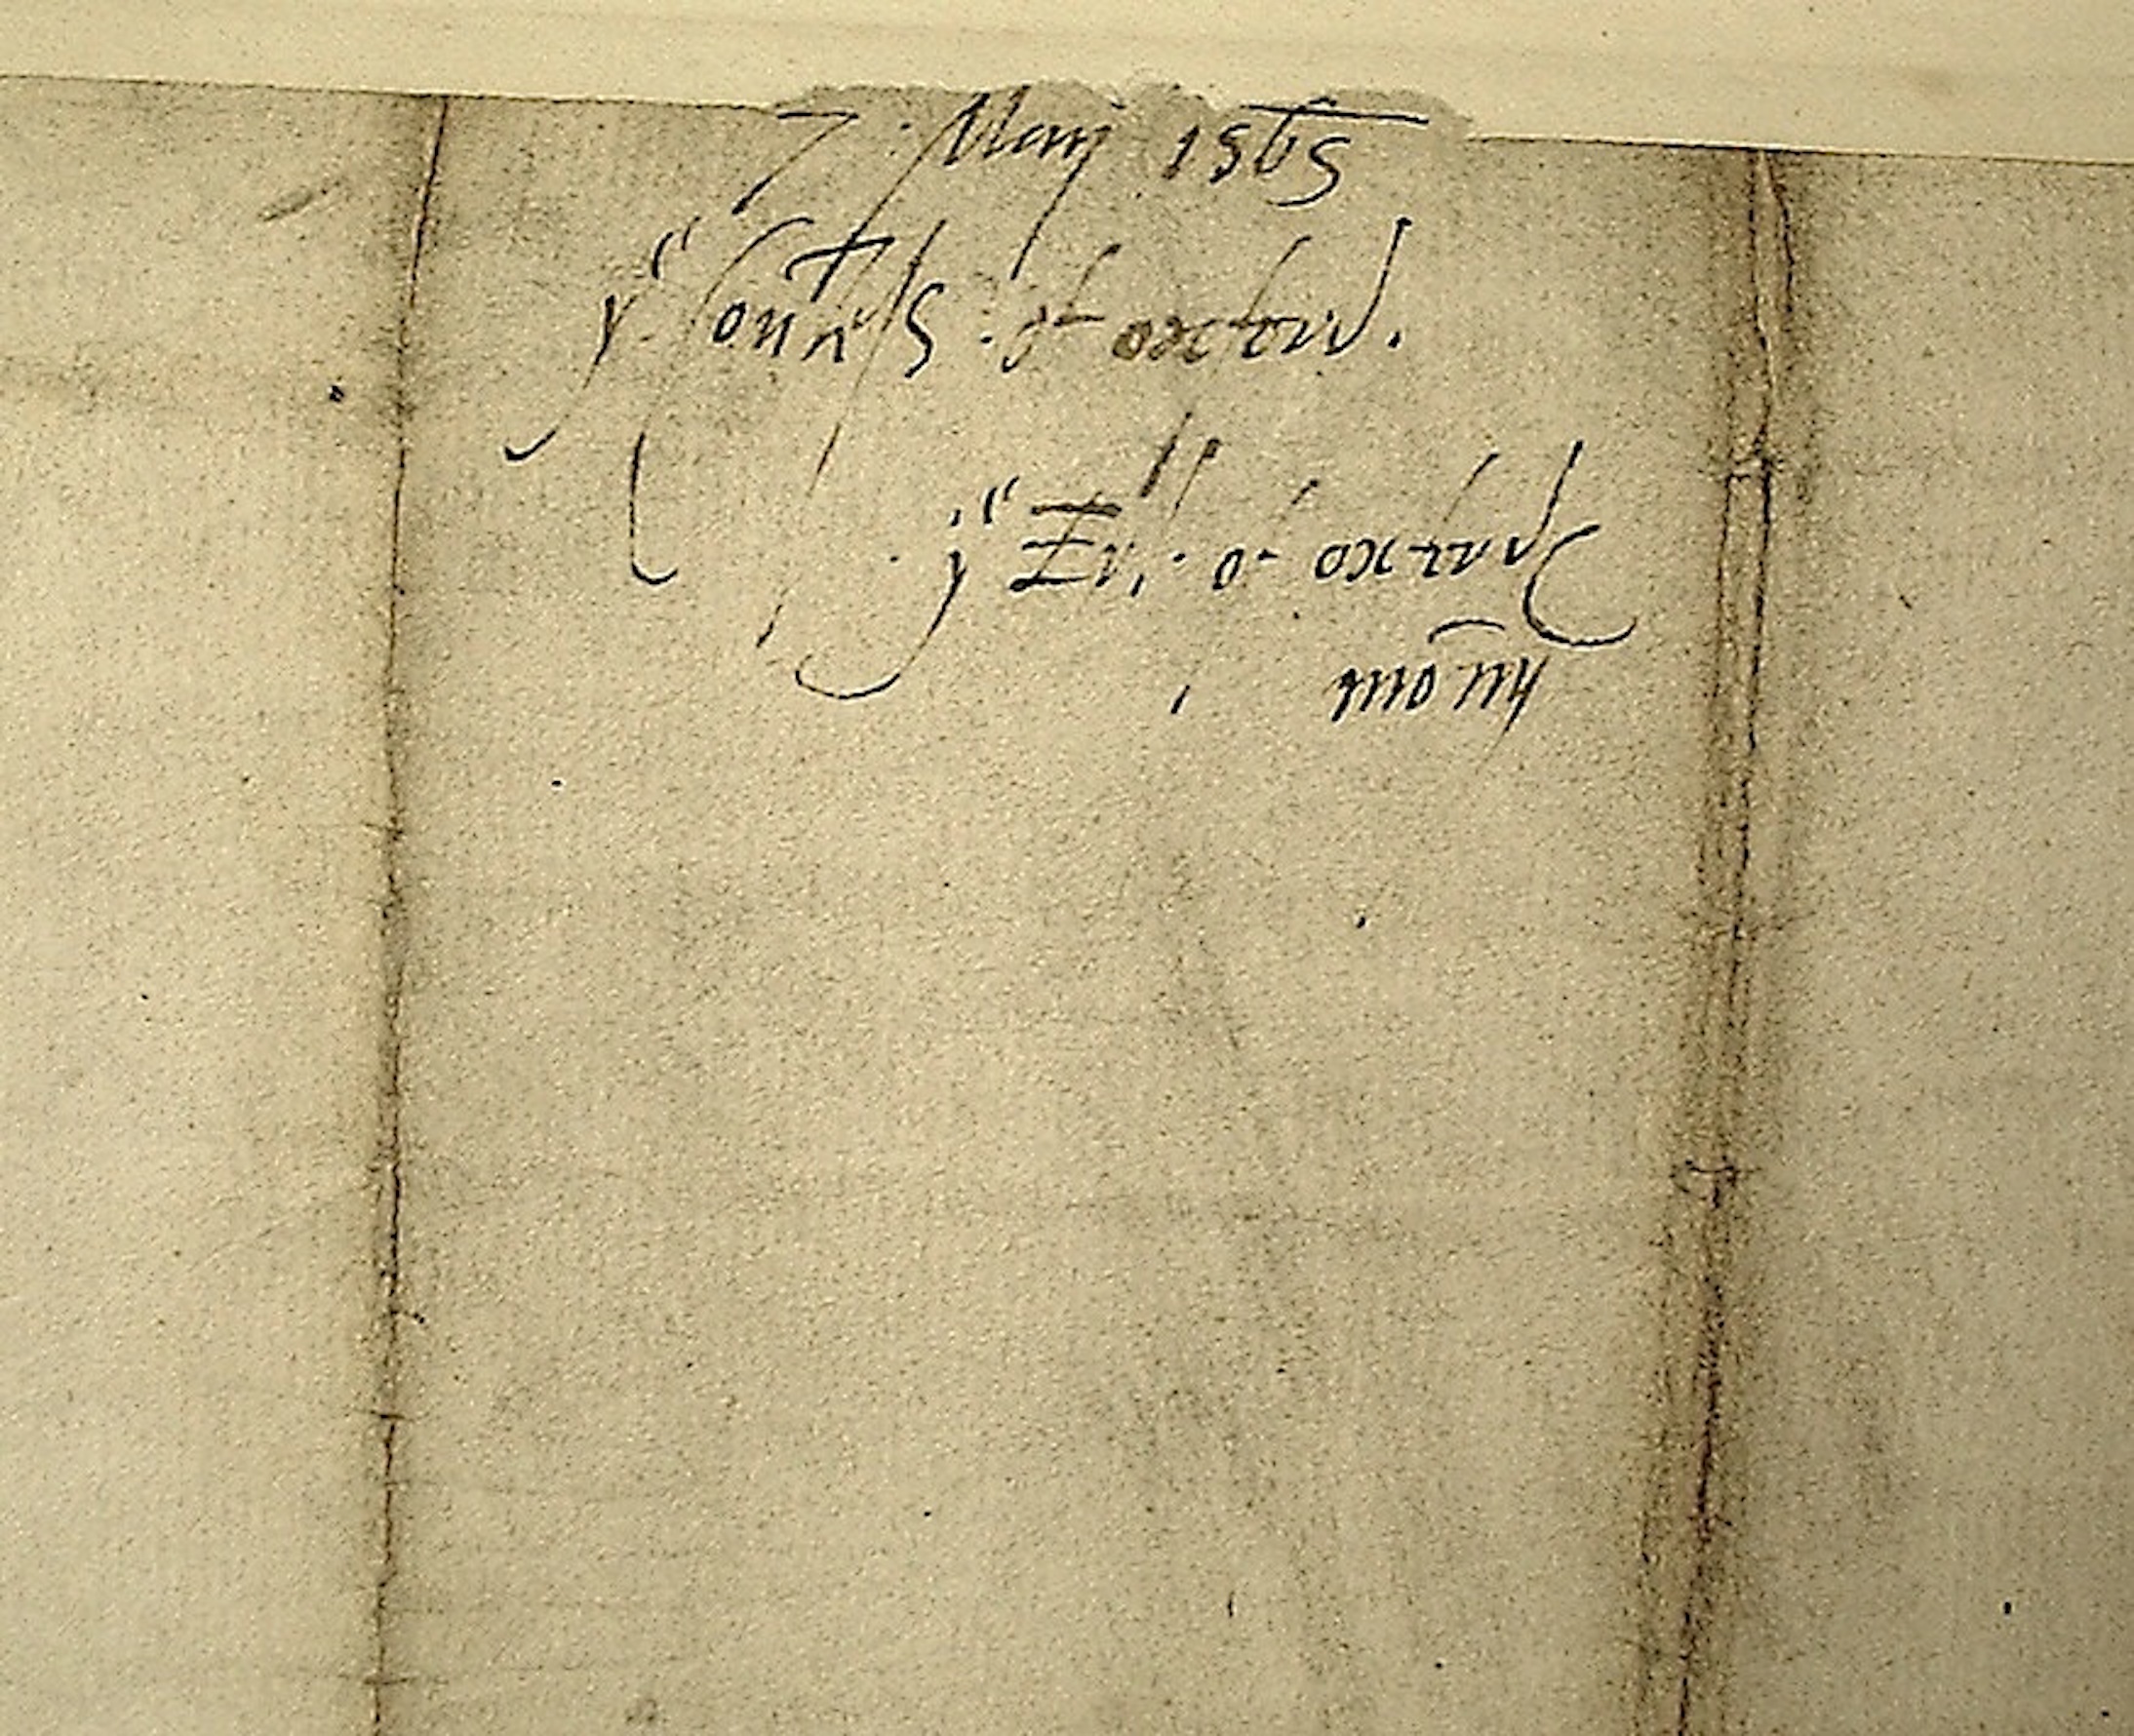 7 Maij 1565
yͤ Countess of oxford.
yͤ Erl. of oxfords
mōny